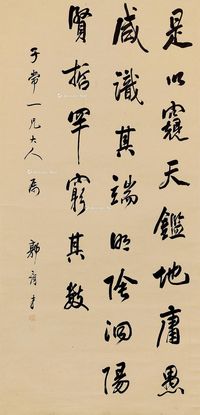 是以窺天鑑地庸愚
咸識其端明陰洞陽
賢哲罕窮其數
子常一兄大人 屬
郭尚先